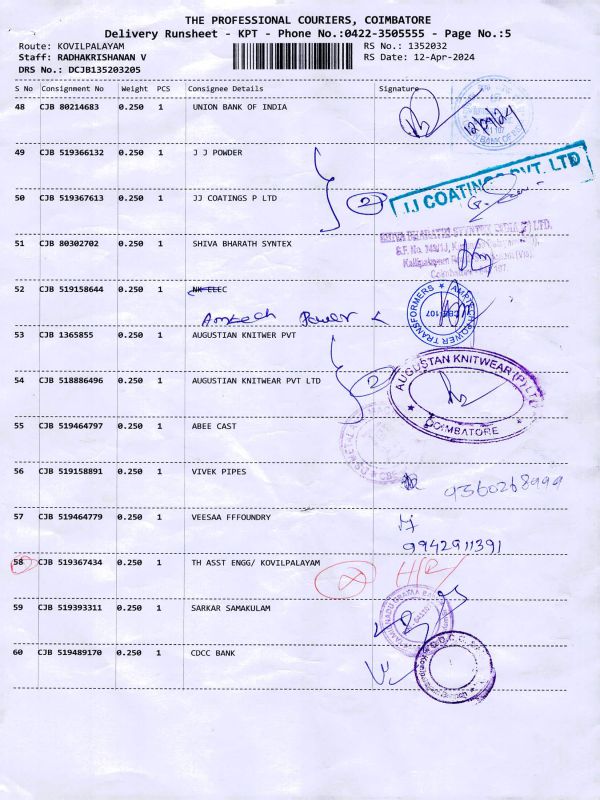 THE PROFESSIONAL COURIERS, COIMBATORE
Delivery Runsheet - KPT - Phone No.:0422-3505555 - Page No.:5
Route: KOVILPALAYAM RS No.: 1352032
Staff: RADHAKRISHANAN V RS Date: 12-Apr-2024
DRS No.: DCJB135203205
S No Consignment No Weight PCS Consignee Details Signature
48 CJB 80214683 0.250 1 UNION BANK OF INDIA
49 CJB 519366132 0.250 1 J J POWDER
50 CJB 519367613 0.250 1 JJ COATINGS P LTD 2 JJ COATINGS PVT. LTD
51 CJB 80302702 0.250 1 SHIVA BHARATH SYNTEX
52 CJB 519158644 0.250 1 NK ELEC
Power
POWER TRANSFORMERS
53 CJB 1365855 0.250 1 AUGUSTIAN KNITWER PVT
54 CJB 518886496 0.250 1 AUGUSTIAN KNITWEAR PVT LTD 2 AUGUSTAN KNITWEAR (P) LTD
COIMBATORE
55 CJB 519464797 0.250 1 ABEE CAST
56 CJB 519158891 0.250 1 VIVEK PIPES
57 CJB 519464779 0.250 1 VEESAA FFFOUNDRY
9942911391
58 CJB 519367434 0.250 1 TH ASST ENGG/ KOVILPALAYAM
59 CJB 519393311 0.250 1 SARKAR SAMAKULAM
60 CJB 519489170 0.250 1 CDCC BANK